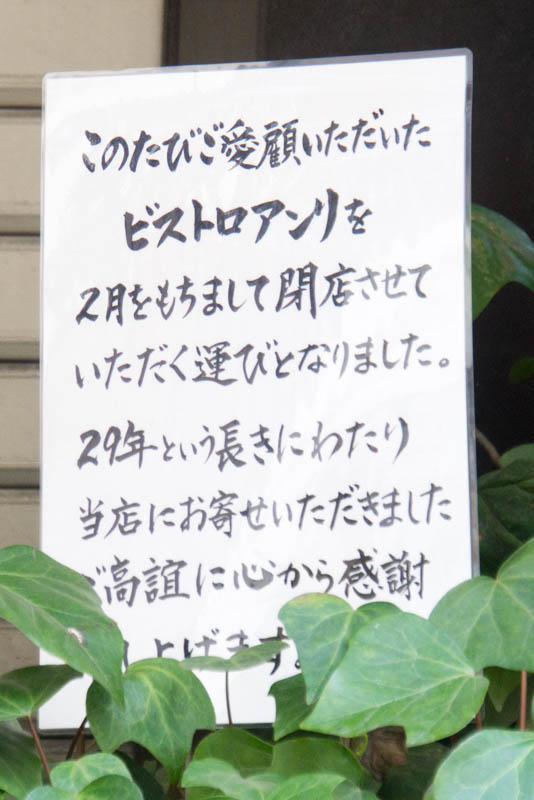 このたびご愛顧いただいた
ビストロアンリを
2月をもちまして閉店させて
いただく運びとなりました。
29年という長きにわたり
当店にお寄せいただきました
ご高誼に心から感謝
上げます。